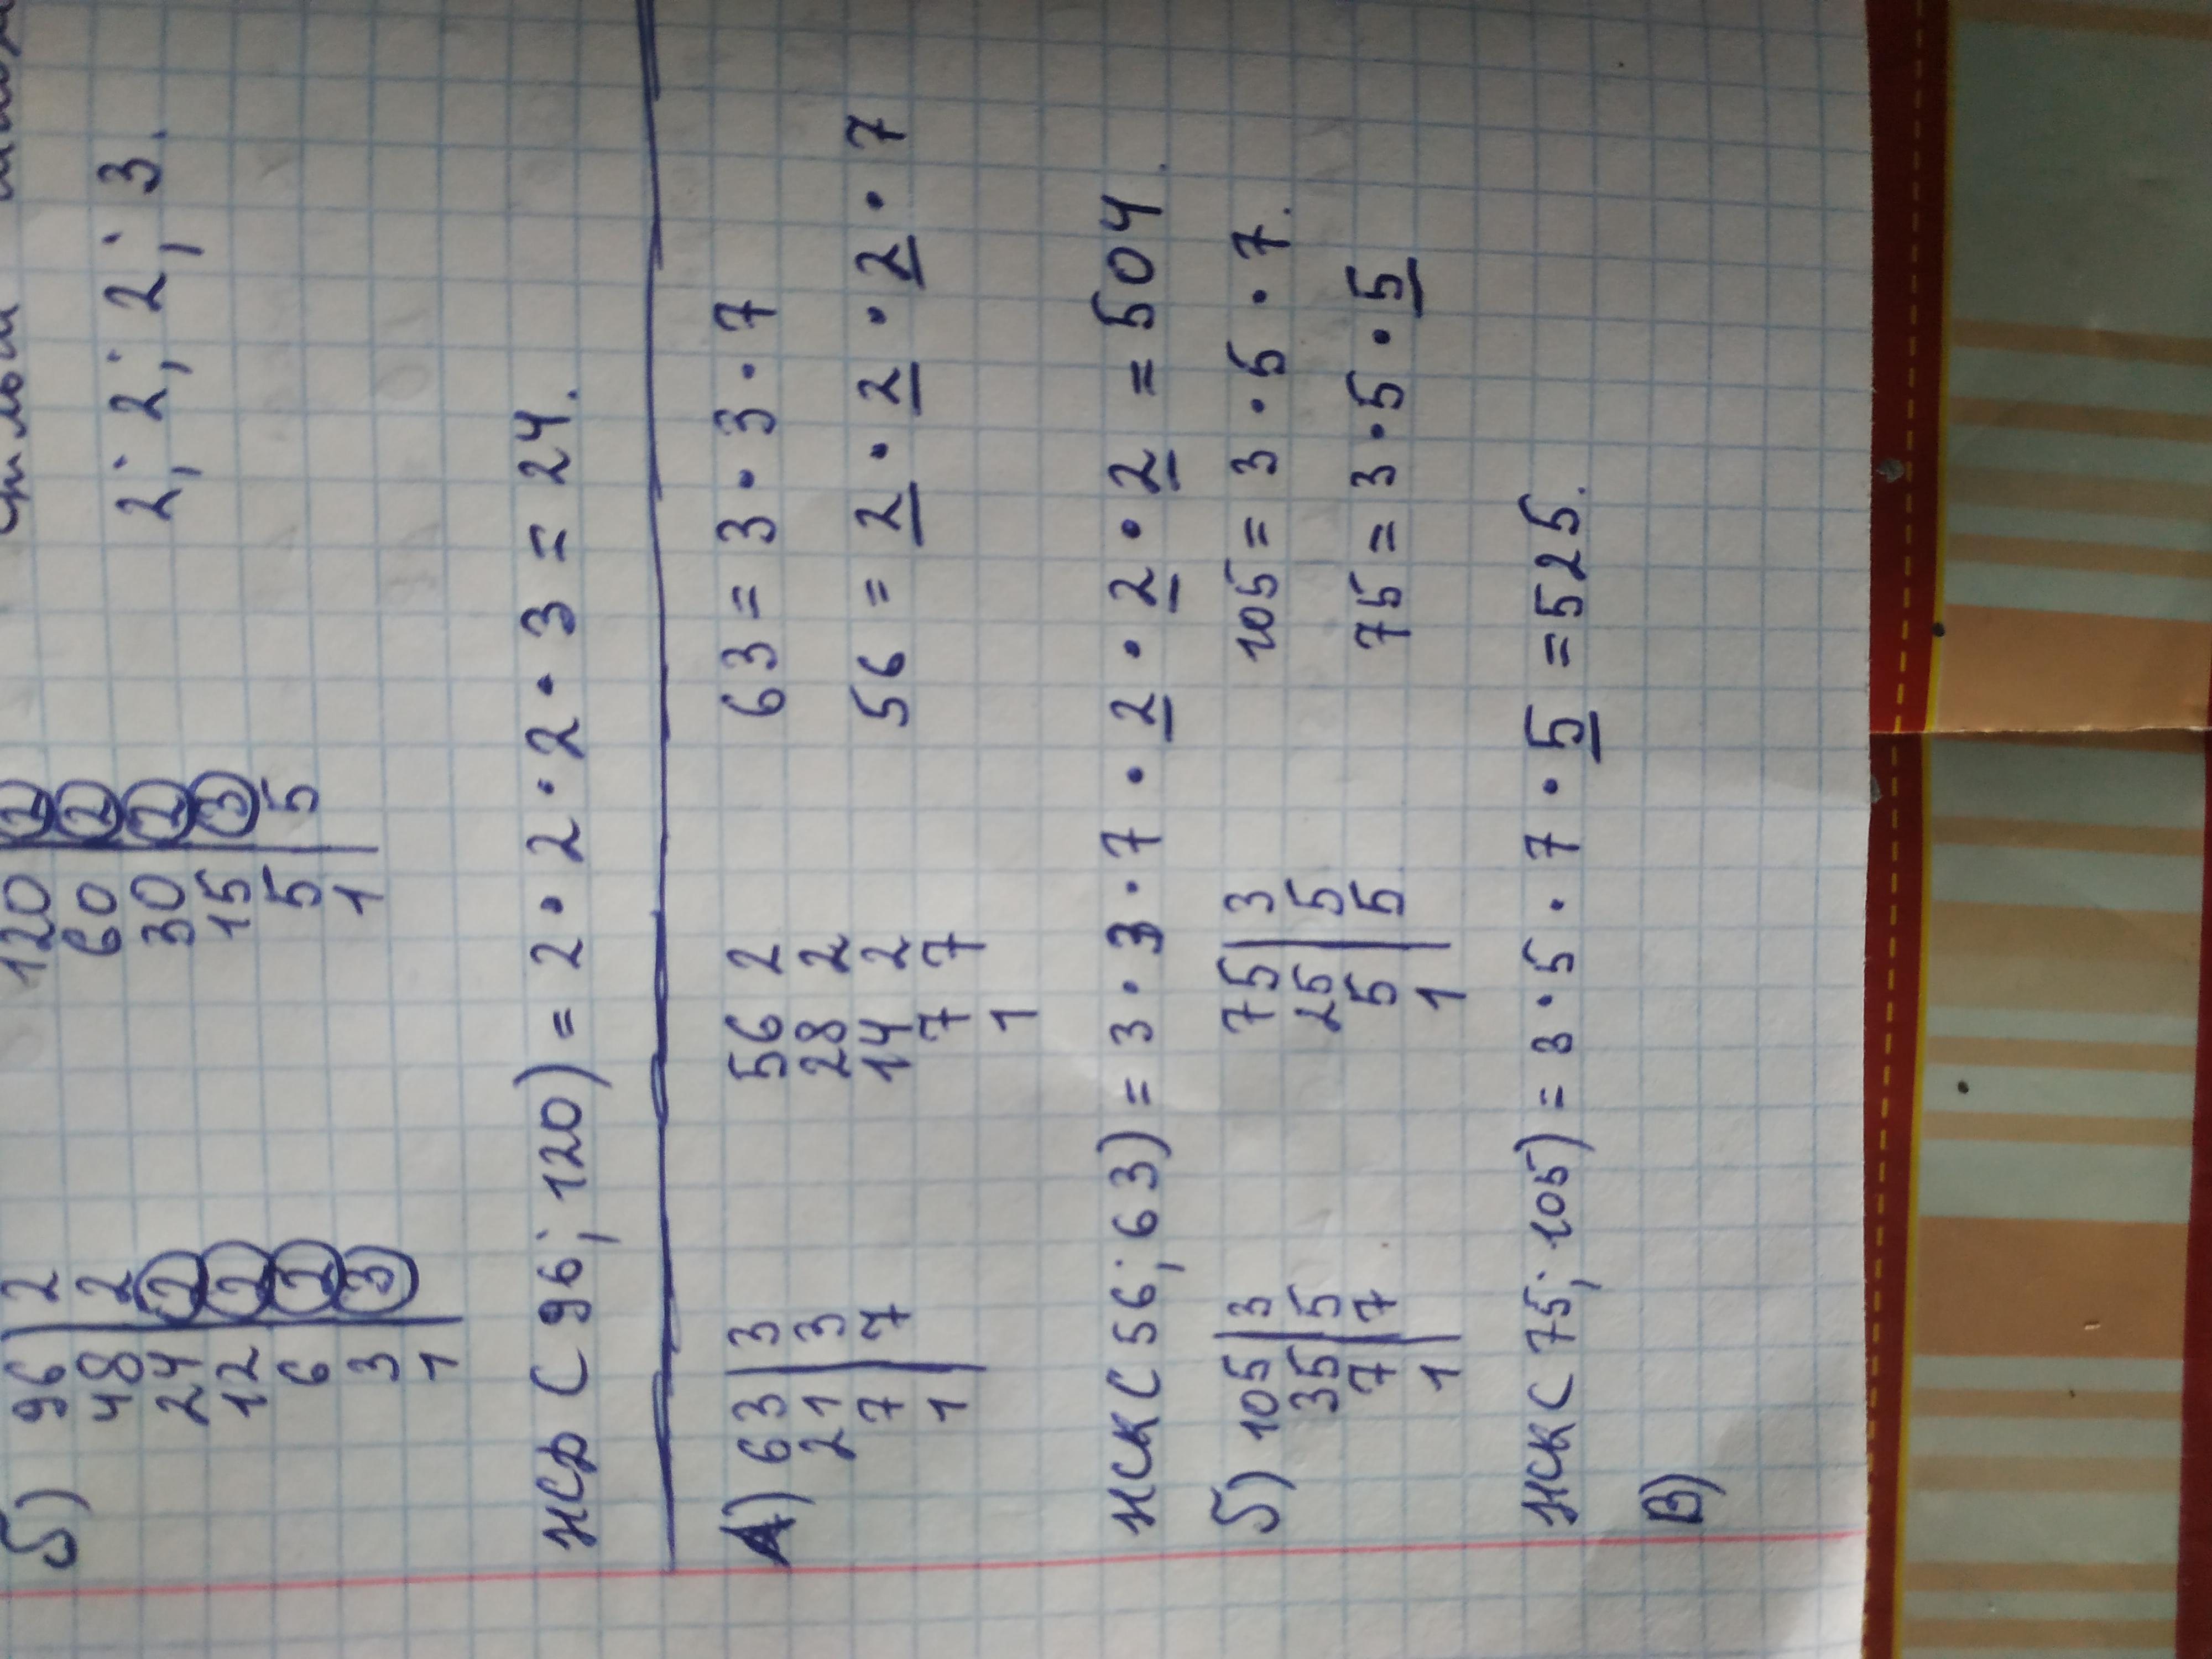 б) 96 | 2 120 | 2
48 | 2 60 | 2
24 | 2 30 | 2 2; 2; 2; 3.
12 | 2 15 | 3
6 | 2 5 | 5
3 | 3 1
1
НСД (96; 120) = 2 · 2 · 2 · 3 = 24.
А) 63 | 3 56 2 63 = 3 · 3 · 7
21 | 3 28 2
7 | 7 14 2 56 = 2 · 2 · 2 · 7
1 7 7
1
НСК (56; 63) = 3 · 3 · 7 · 2 · 2 · 2 = 504.
б) 105 | 3 75 | 3 105 = 3 · 5 · 7.
35 | 5 25 | 5
7 | 7 5 | 5 75 = 3 · 5 · 5
1 1
НСК (75; 105) = 3 · 5 · 7 · 5 = 525.
В)